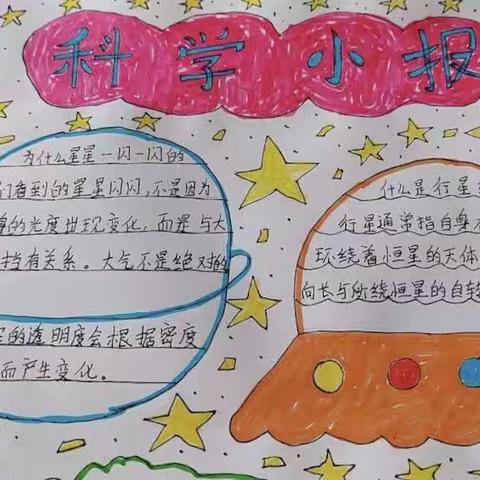 科学小报
为什么星星一闪一闪的
们看到的星星闪闪,不是因为
的光度出现变化,而是与大
挡有关系。大气不是绝对的
的透明度会根据密度
而产生变化。
什么是行星
行星通常指自身不
环绕着恒星的天体
向长与所绕恒星的自转